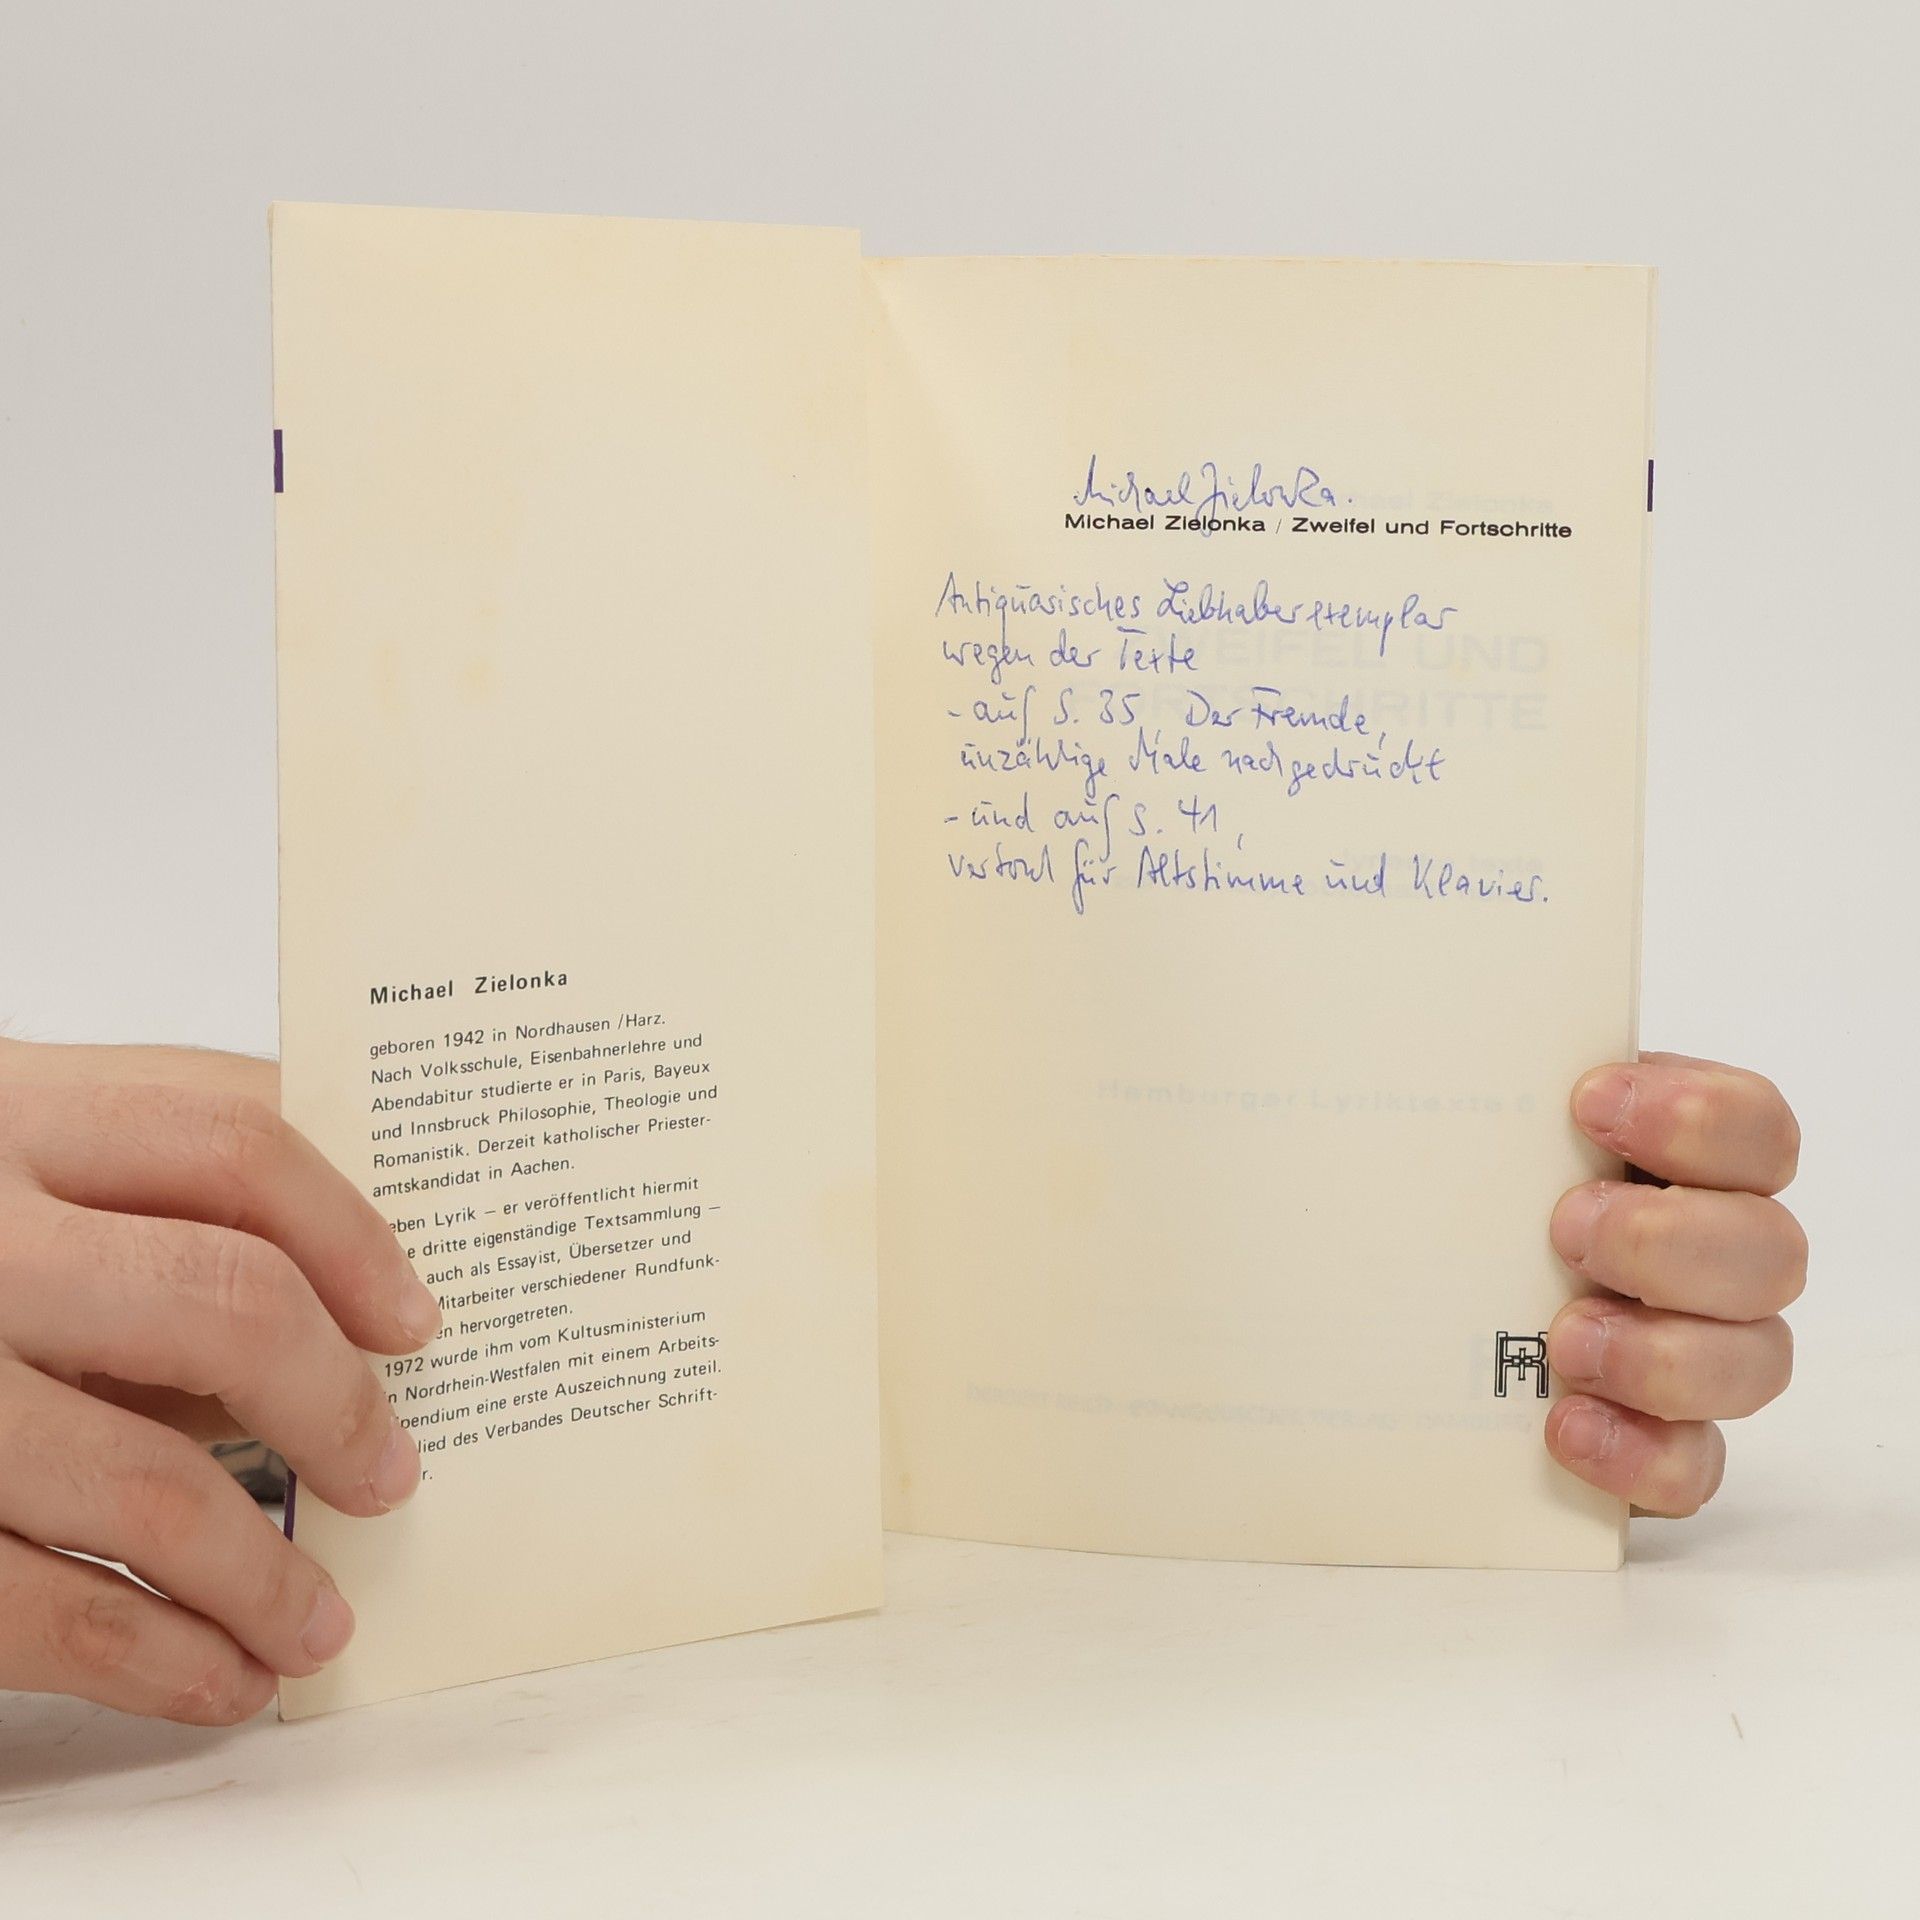 Michael Zielonka
geboren 1942 in Nordhausen /Harz.
Nach Volksschule, Eisenbahnerlehre und
Abendabitur studierte er in Paris, Bayeux
und Innsbruck Philosophie, Theologie und
Romanistik. Derzeit katholischer Priester-
amtskandidat in Aachen.
eben Lyrik – er veröffentlicht hiermit
e dritte eigenständige Textsammlung –
auch als Essayist, Übersetzer und
Mitarbeiter verschiedener Rundfunk-
en hervorgetreten.
1972 wurde ihm vom Kultusministerium
in Nordrhein-Westfalen mit einem Arbeits-
ipendium eine erste Auszeichnung zuteil.
lied des Verbandes Deutscher Schrift-
r.
Michael Zielonka.
Michael Zielonka / Zweifel und Fortschritte
Antiquarisches Liebhaberexemplar
wegen der Texte
- auf S. 35, Der Fremde,
unzählige Male nachgedruckt
- und auf S. 41,
vertont für Altstimme und Klavier.
ZWEIFEL UND
FORTSCHRITTE
Hamburger Lyriktexte 6